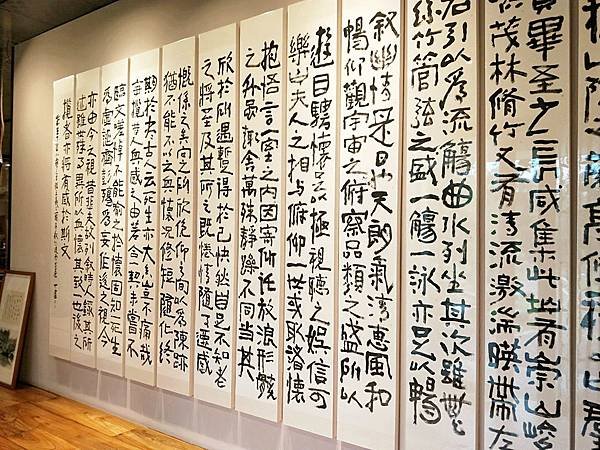 賢畢至少長咸集此地有崇山峻
茂林脩竹又有清流激湍暎帶左
右引以為流觴曲水列坐其次雖無
絲竹管弦之盛一觴一詠亦足以暢
敘幽情是日也天朗氣清惠風和
暢仰觀宇宙之俯察品類之盛所以
遊目騁懷足以極視聽之娛信可
樂也夫人之相與俯仰一世或取諸懷
抱悟言一室之內因寄所託放浪形骸
之外雖趣舍萬殊靜躁不同當其
欣於所遇暫得於己快然自足不知老
之將至及其所之既惓情隨事遷感
慨係之矣向之所欣俛仰之間以為陳跡
猶不能不以之興懷況脩短隨化終
期於盡古人云死生亦大矣豈不痛哉
每攬昔人興感之由若合一契未嘗不
臨文嗟悼不能喻之於懷固知一死生
為虛誕齊彭殤為妄作後之視今
亦由今之視昔悲夫故列敘時人錄其所
述雖世殊事異所以興懷其致一也後之
攬者亦將有感於斯文